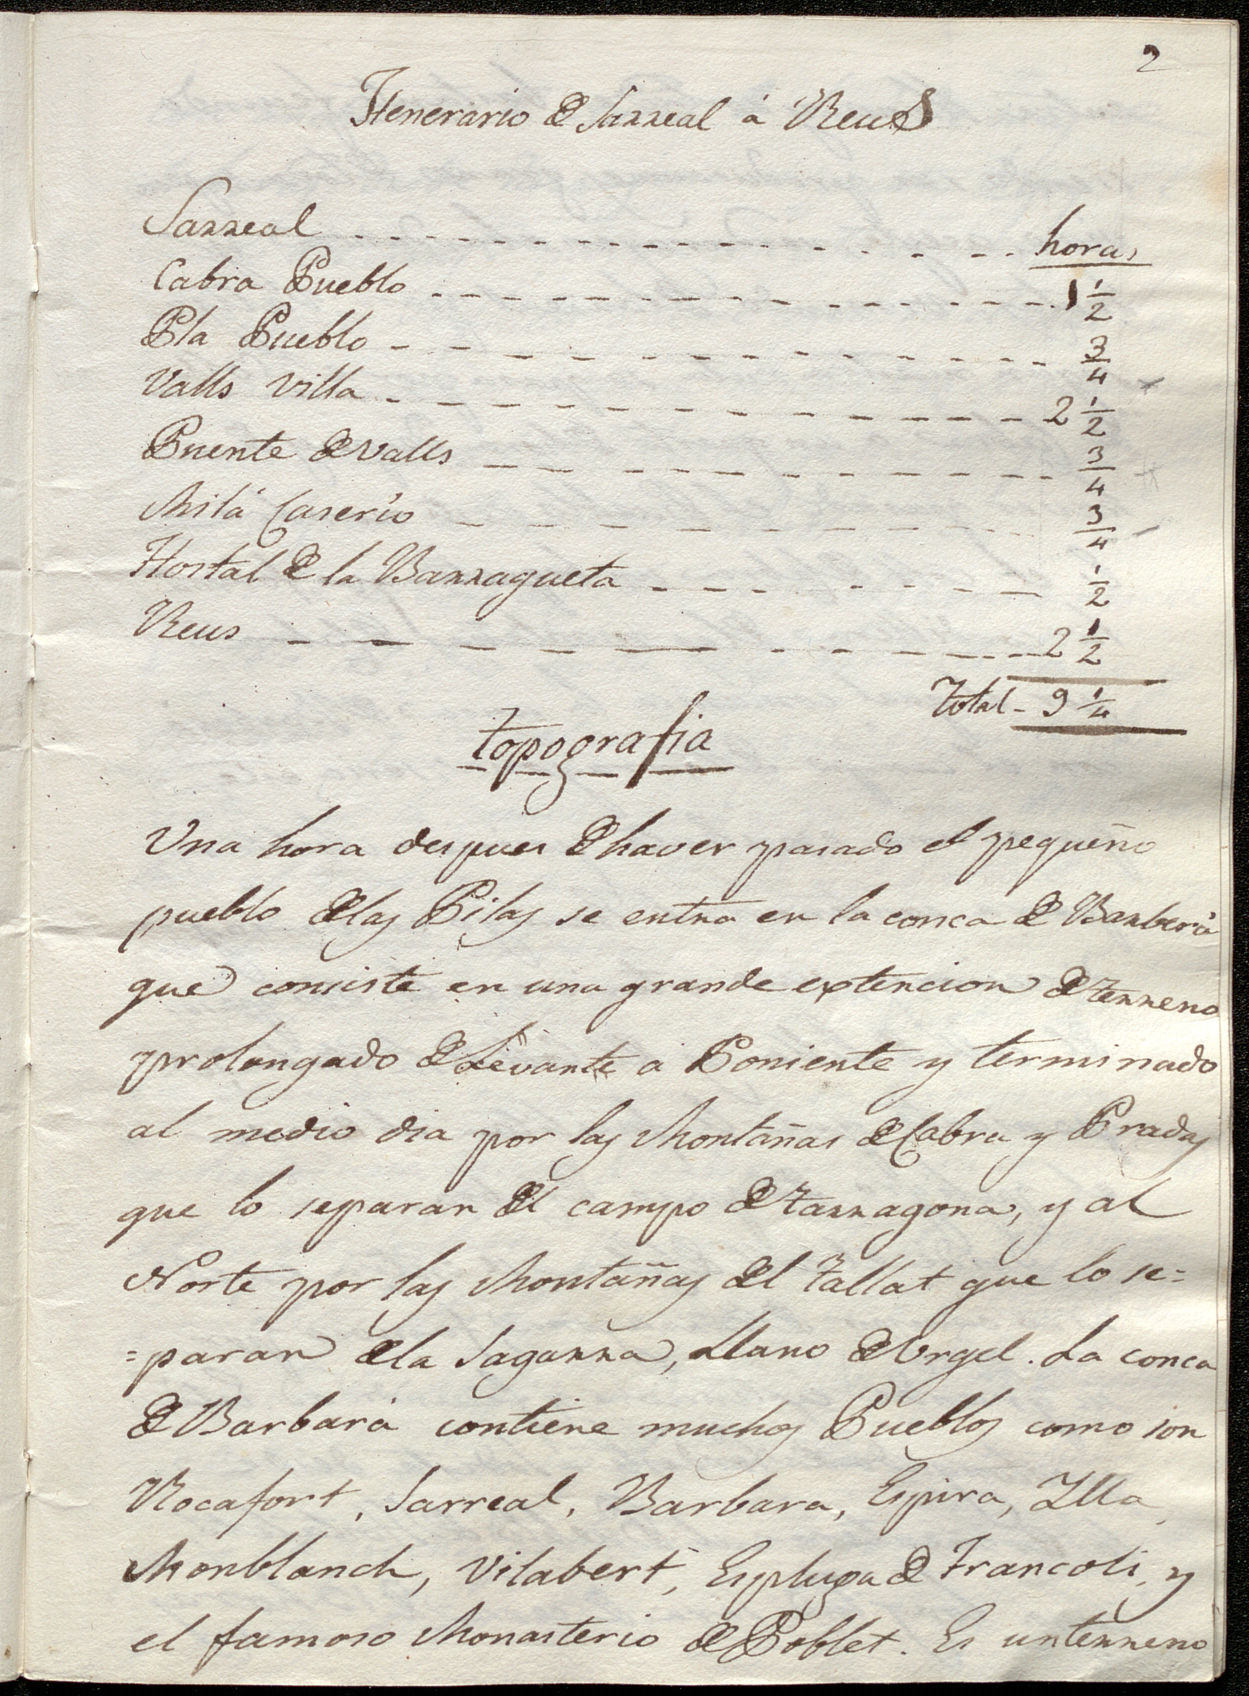 2
Itenerario de Sarreal á Reus
Sarreal - - - - - - - - - - - - - - horas
Cabra Pueblo - - - - - - - - - - - - - - 1 1/2
Pla Pueblo - - - - - - - - - - - - - - 3/4
Valls villa - - - - - - - - - - - - - - 2 1/2
Puente de Valls - - - - - - - - - - - - - - 3/4
Milá Caserío - - - - - - - - - - - - 3/4
Hostal de la Barragueta - - - - - - - - 1/2
Reus - - - - - - - - - - - - 2 1/2
Total - 9 1/4
topografia
Una hora despues de haver pasado el pequeño
pueblo de las Pilas se entra en la conca de Barberá
que consiste en una grande extencion de terreno
prolongado de Levante a Poniente y terminado
al medio dia por las Montañas de Cabra y Pradas
que lo separan del campo de Tarragona, y al
Norte por las Montañas del Tallat que lo se=
=paran de la Sagarra, Llano de Urgel. La conca
de Barbará contiene muchos Pueblos como son
Rocafort, Sarreal, Barbara, Espira, Illa,
Monblanch, Vilabert, Espluga de Francoli, y
el famoso Monasterio de Poblet. Es un terreno